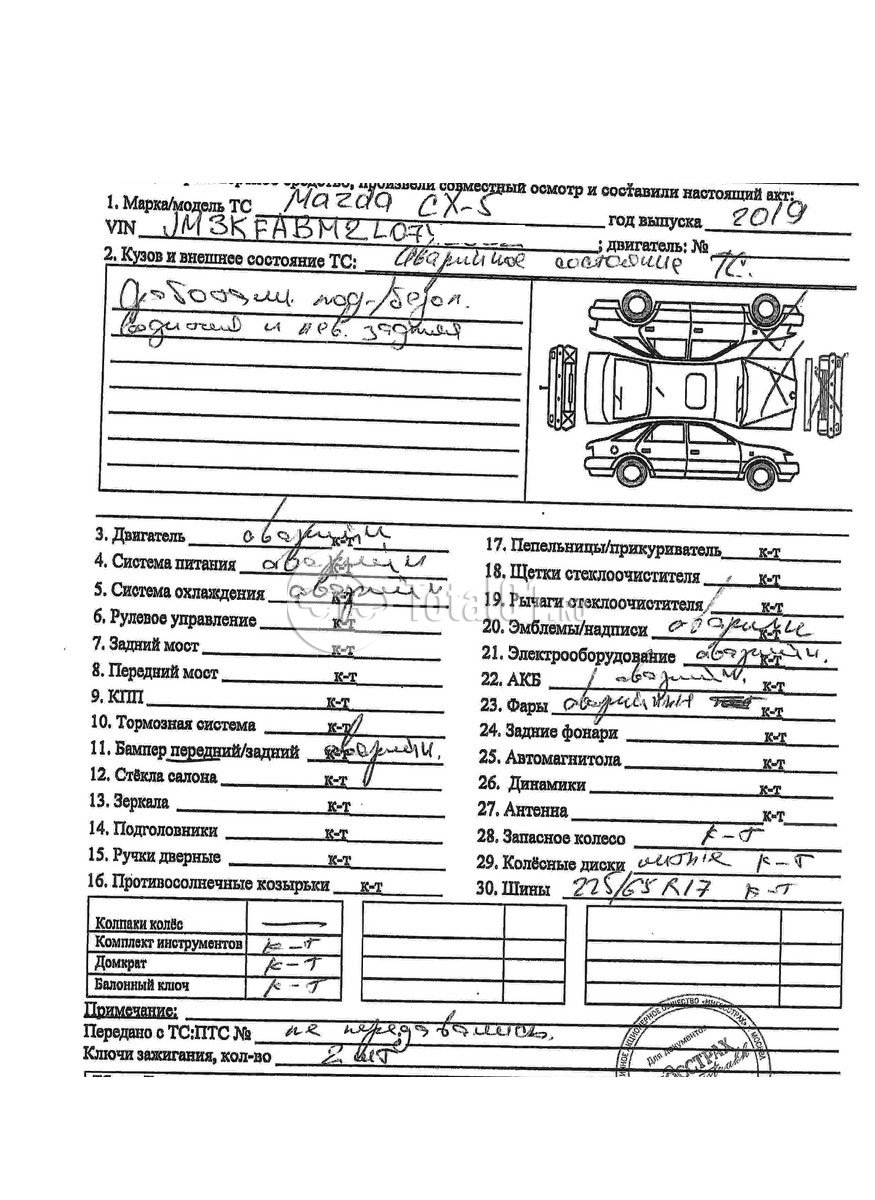 произвели совместный осмотр и составили настоящий акт:
1. Марка/модель ТС Mazda CX-5 год выпуска 2019
VIN JM3KFABM2L07 ; двигатель: №
2. Кузов и внешнее состояние ТС: Аварийное состояние ТС.
под. безоп.
и лев. задняя
3. Двигатель аварийн к-т
4. Система питания аварийн к-т
5. Система охлаждения аварийн. к-т
6. Рулевое управление к-т
7. Задний мост к-т
8. Передний мост к-т
9. КПП к-т
10. Тормозная система к-т
11. Бампер передний/задний аварийн. к-т
12. Стёкла салона к-т
13. Зеркала к-т
14. Подголовники к-т
15. Ручки дверные к-т
16. Противосолнечные козырьки к-т
17. Пепельницы/прикуриватель к-т
18. Щетки стеклоочистителя к-т
19. Рычаги стеклоочистителя к-т
20. Эмблемы/надписи аварийн к-т
21. Электрооборудование аварийн. к-т
22. АКБ аварийн. к-т
23. Фары к-т
24. Задние фонари к-т
25. Автомагнитола к-т
26. Динамики к-т
27. Антенна к-т
28. Запасное колесо к-т
29. Колёсные диски литые к-т
30. Шины 225/65 R17 к-т
Колпаки колёс —
Комплект инструментов к-т
Домкрат к-т
Балонный ключ к-т
Примечание:
Передано с ТС:ПТС № не передавались.
Ключи зажигания, кол-во 2 шт
Total01.ru
ОБЩЕСТВО «ИНГОССТРАХ» МОСКВА
Для документов